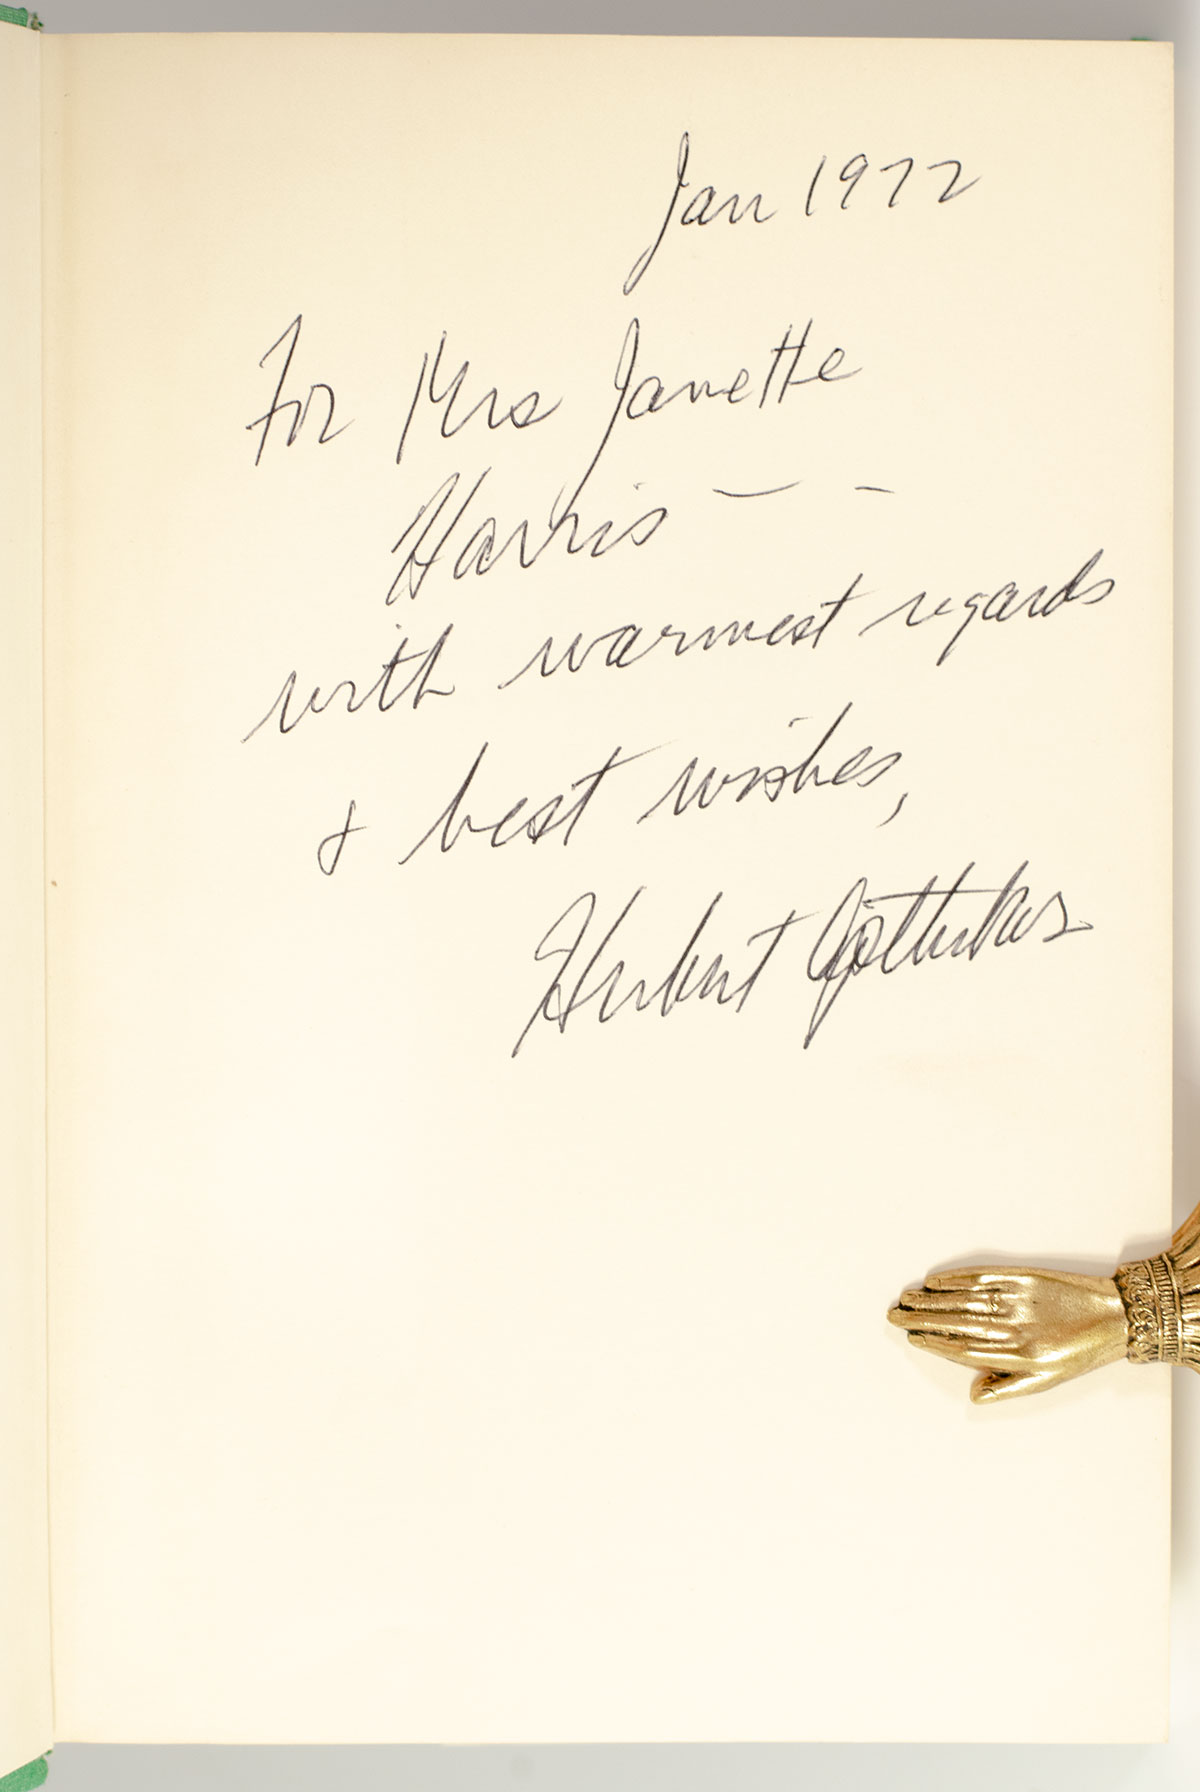 Jan 1972
For Mrs Janette
Harris — -
with warmest regards
& best wishes,
Herbert Aptheker